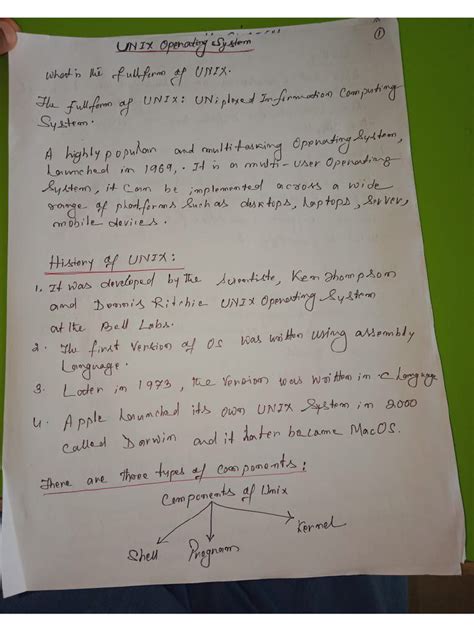 ①
UNIX Operating System
What is the fullform of UNIX.
The fullform of UNIX: UNiplexed Information Computing
System.
A highly popular and multitasking Operating System,
Launched in 1969,. It is a multi-user Operating
System, it can be implemented across a wide
range of platforms such as desktops, Laptops, Server,
mobile devices.
History of UNIX:
1. It was developed by the Scientists, Ken Thompson
and Dennis Ritchie UNIX Operating System
at the Bell Labs.
2. The first version of OS was written using assembly
Language.
3. Later in 1973, the version was written in C language
4. Apple Launched its own UNIX System in 2000
called Darwin and it later became MacOS.
There are three types of components:
Components of Unix
Shell Program Kernel